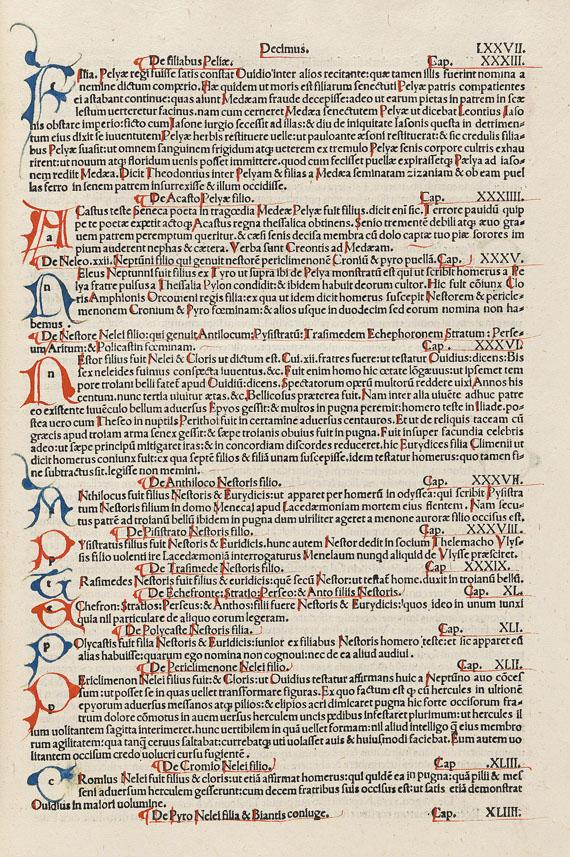 Decimus. LXXVII.
De filiabus Peliæ. Cap. XXXIII.
Filia. Pelyæ regi fuisse satis constat Ouidio inter alios recitante: quæ tamen illis fuerint nomina a
nemine dictum comperio. Hæ quidem ut moris est filiarum senectuti Pelyæ patris compatientes
ei astabant continue: quas aiunt Medæam fraude decepisse: adeo ut earum pietas in patrem in scæ
lestum uerteretur facinus. nam cum cerneret Medæa senectutem Pelyæ ut dicebat Leontius Iaso
nis obstare imperio: ficto cum Iasone iurgio secessit ad illas: & diu de iniquitate Iasonis questa in detrimen-
tum eius dixit se iuuentutem Pelyæ herbis restituere uelle: ut paulo ante æsoni restituerat: & sic credulis filia-
bus Pelyæ suasit: ut omnem sanguinem frigidum atq; ueterem ex tremulo Pelyæ senis corpore cultris exhau
rirent: ut nouum atq; floridum uenis posset immittere. quod cum fecisset puellæ expirassetq; Pælya ad iaso-
nem rediit Medæa. Dicit Theodontius inter Pelyam & filias a Medæa seminatam zizaniam & ob eam puel
las ferro in senem patrem insurrexisse & illum occidisse.
De Acasto Pelyæ filio. Cap. XXXIIII.
Acastus teste Seneca poeta in tragœdia Medeæ Pelyæ fuit filius. dicit eni sic. Terrore pauidū quip
pe te poetæ expetit actoq; Acastus regna thesalica obtinens. Senio trementē debili atq; æuo gra-
uem patrem peremptum queritur. & cæsi senis decisa membra cū dolo captæ tuo piæ sorores im
pium auderent nephas & cætera. Verba sunt Creontis ad Medæam.
De Neleo. xxii. Neptūni filio qui genuit nestorē periclimonē Croniū & pyro puellā. Cap. XXXV.
Neleus Neptunni fuit filius ex Tyro ut supra ibi de Pelya monstratū est qui ut scribit homerus a Pe
lya fratre pulsus a Thesalia Pylon condidit: & ibidem habuit deorum cultor. Hic fuit cōiunx Clo
ris Amphionis Orcomeni regis filia: ex qua ut idem dicit homerus suscepit Nestorem & pericle-
menonem Cronium & Pyro fœminam: & alios usque in duodecim sed eorum nomina non ha-
bemus.
De Nestore Nelei filio: qui genuit Antilocum: Pysistratū: Trasimedem Echephoronem Stratum: Perse-
um Aritum: & Policastin fœminam. Cap. XXXVI.
Nestor filius fuit Nelei & Cloris ut dictum est. Cui. xii. fratres fuere: ut testatur Ouidius: dicens: Bis
sex neleides fuimus conspecta iuuentus. &c. Fuit enim homo hic œtate lōgæuus: ut ipsemet tem
pore troiani belli fatet̄ apud Ouidiū: dicens. Spectatorum operū multorū reddere uixi Annos bis
centum. nunc tertia uiuitur ætas. &c. Bellicosus præterea fuit. Nam inter alia uiuēte adhuc patre
eo existente iuuēculo bellum aduersus Epyos gessit: & multos in pugna peremit: homero teste in Iliade. po-
stea uero cum Theseo in nuptiis Perithoi fuit in certamine aduersus centauros. Et ut de reliquis taceam cū
græcis apud troiam arma senex gessit: & sæpe troianis obuius fuit in pugna. Fuit insuper facundia celebris
adeo: ut sæpe principū mitigaret iras: & in concordiam discordes reduceret. hic Eurydices filia Climenii ut
dicit homerus coniunx fuit: ex qua septē filios & filiā unam suscepisse. idem testatur homerus: quo tamen fi-
ne subtractus sit. legisse non memini.
De Anthiloco Nestoris filio. Cap. XXXVII.
Anthilocus fuit filius Nestoris & Eurydicis: ut apparet per homerū in odyssea: qui scribit Pysistra
tum Nestoris filium in domo Menecaj apud Lacedæmoniam mortem eius flentem. Nam secu-
tus patrē ad troianū beliū ibidem in pugna dum uiriliter ageret a menone auroræ filio occisus est.
De Pisistrato Nestoris filio. Cap. XXXVIII.
Pysistratus filius fuit Nestoris & Euridicis. hunc autem Nestor dedit in socium Thelemacho Vlys-
sis filio uolenti ire Lacedæmoniā interrogaturus Menelaum nunqd aliquid de Vlysse præsciret.
De Trasimede Nestoris filio. Cap. XXXIX.
Trasimedes Nestoris fuit filius & euridicis: quē secū Nestor: ut testat̄ home. duxit in troianū bellū.
De Echefronte: Stratio: Perseo: & Anto filiis Nestoris. Cap. XL.
Echefron: Stratios: Perseus: & Anthos: filii fuere Nestoris & Eurydicis: quos ideo in unum iunxi
quia nil particulare de aliquo eorum legeram.
De Polycaste Nestoris filia. Cap. XLI.
Polycastis fuit filia Nestoris & Euridicis: iunior ex filiabus Nestoris homero teste: et sic apparet eū
alias habuisse: quarum ego nomina non cognoui: nec de ea aliud audiui.
De Periclimenone Nelei filio. Cap. XLII.
Periclimenon Nelei filius fuit: & Cloris: ut Ouidius testatur affirmans huic a Neptūno auo cōces
sum: ut posset se in quas uellet transformare figuras. Ex quo factum est q; cū hercules in ultionē
epyorum aduersus messanos atq; pilios: & elipios acri dimicaret pugna hic forte occisorum fra-
trum dolore cōmotus in auem uersus herculem uncis pedibus infestaret plurimum: ut hercules il
lum uolitantem sagitta interimeret. hunc uertibilem in quā uellet formam: nil aliud intelligo q; eius membro
rum agilitatem: qua tanq; ceruus saltabat: currebatq; uti uolasset auis & huiusmodi faciebat. Eum autem uo
litantem occisum credo uelocri cursu fugientē.
De Cromio Nelei filio. Cap .XLIII.
Cromius Nelei fuit filius & cloris: ut etiā affirmat homerus: qui quidē ea in pugna: quā pilii & mes
seni aduersum herculem gesserunt: cum decem fratribus suis occisus est: ut satis etiā demonstrat
Ouidius in maiori uolumine.
De Pyro Nelei filia & Biantis coniuge. Cap. XLIIII.